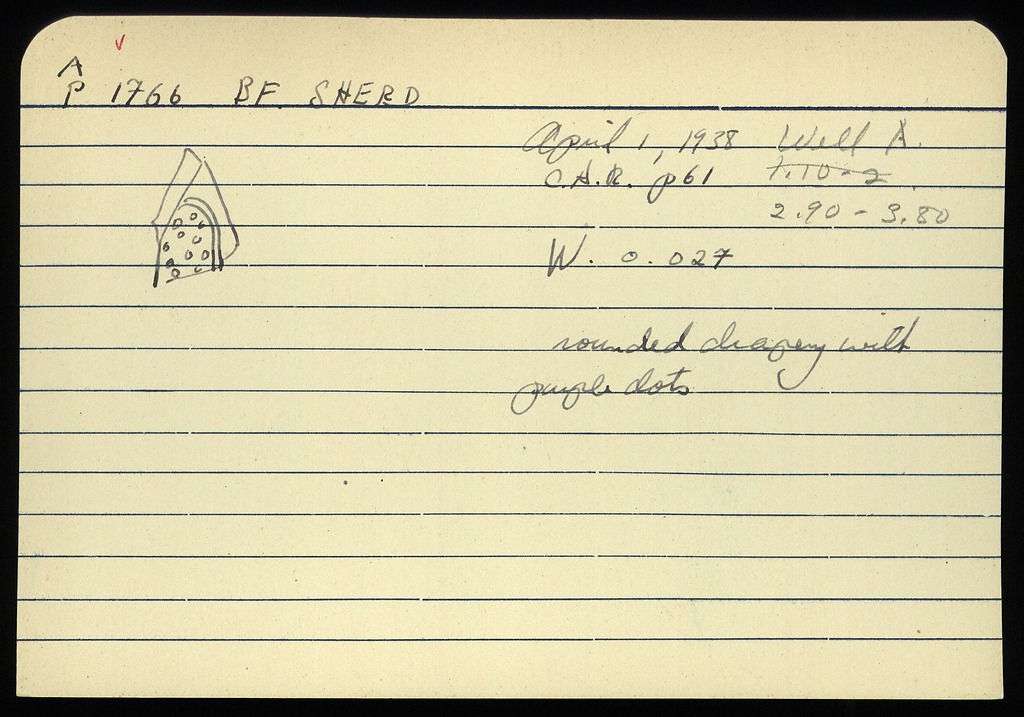 A
P 1766 BF. SHERD
April 1, 1938 Well A.
C.H.R. p61 1.10-2
2.90 - 3.80
W. 0.027
rounded drapery with
purple dots